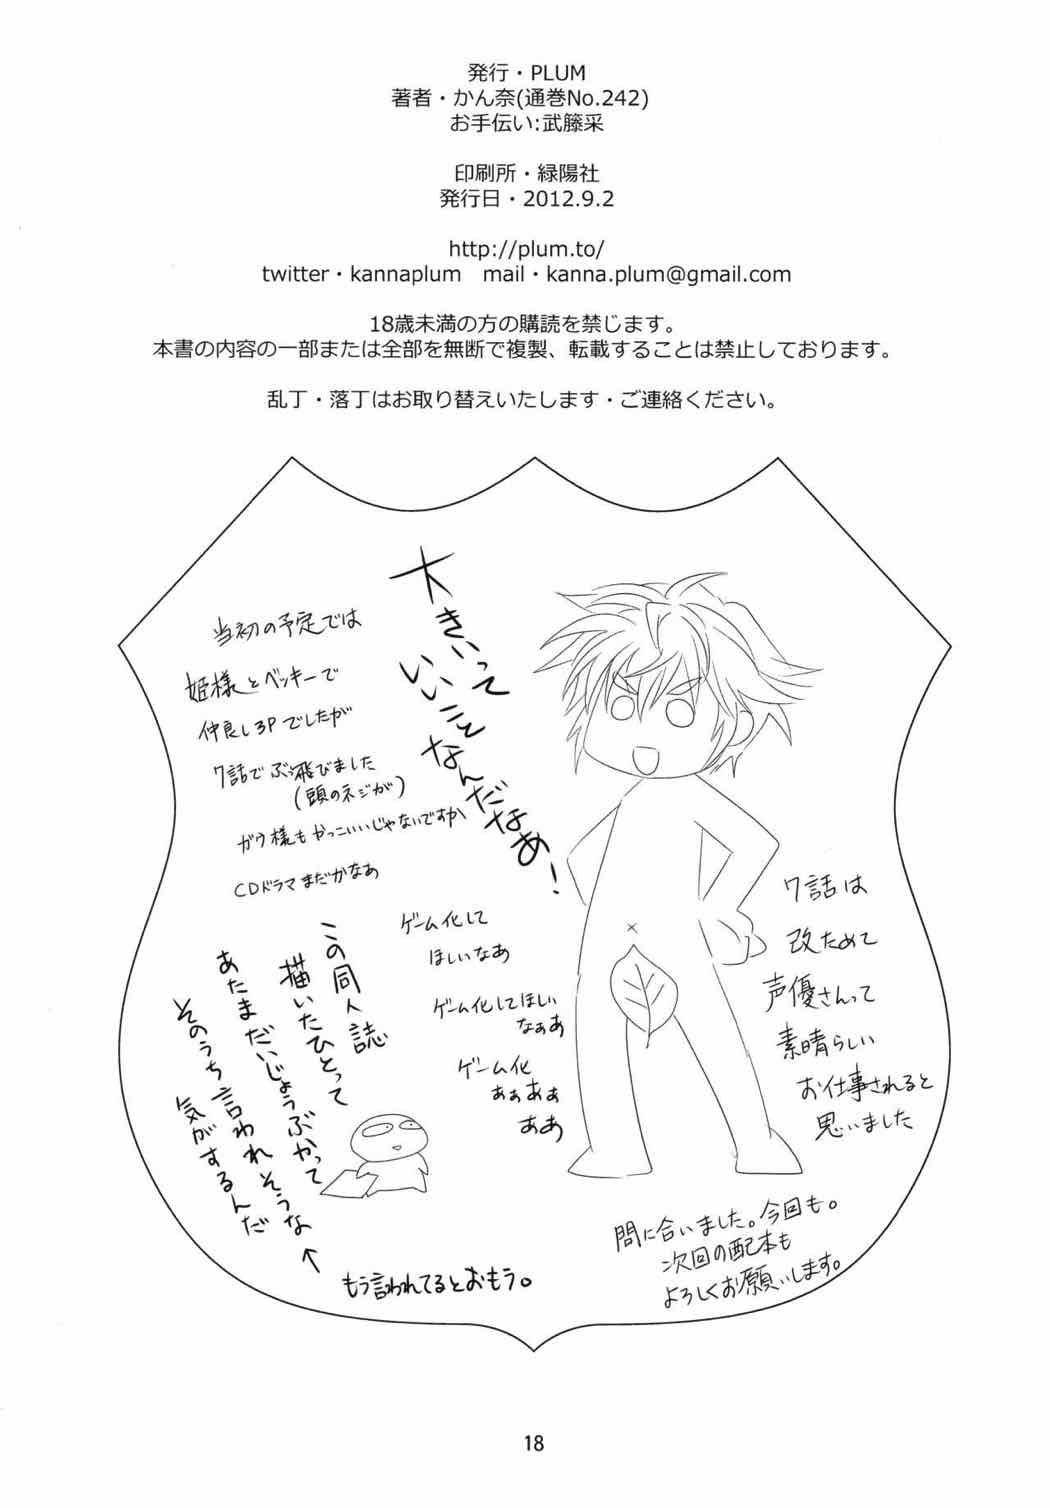 発行・PLUM
著者・かん奈(通巻No.242)
お手伝い:武藤采
印刷所・緑陽社
発行日・2012.9.2
http://plum.to/
twitter・kannaplum　mail・kanna.plum@gmail.com
18歳未満の方の購読を禁じます。
本書の内容の一部または全部を無断で複製、転載することは禁止しております。
乱丁・落丁はお取り替えいたします・ご連絡ください。
大きいって
いいことなんだなあ!
当初の予定では
姫様とベッキーで
仲良し3Pでしたが
7話でぶっ飛びました
(頭のネジが)
ガウ様もかっこいいじゃないですか
CDドラマまだかなあ
ゲーム化して
ほしいなあ
ゲーム化してほしい
なぁあ
ゲーム化
ぁぁあぁ
ああ
この同人誌
描いたひとって
あたまだいじょうぶかって
そのうち言われそうな
気がするんだ
↑
もう言われてるとおもう。
7話は
改ためて
声優さんって
素晴らしい
お仕事されると
思いました
間に合いました。今回も。
次回の配本も
よろしくお願いします。
18